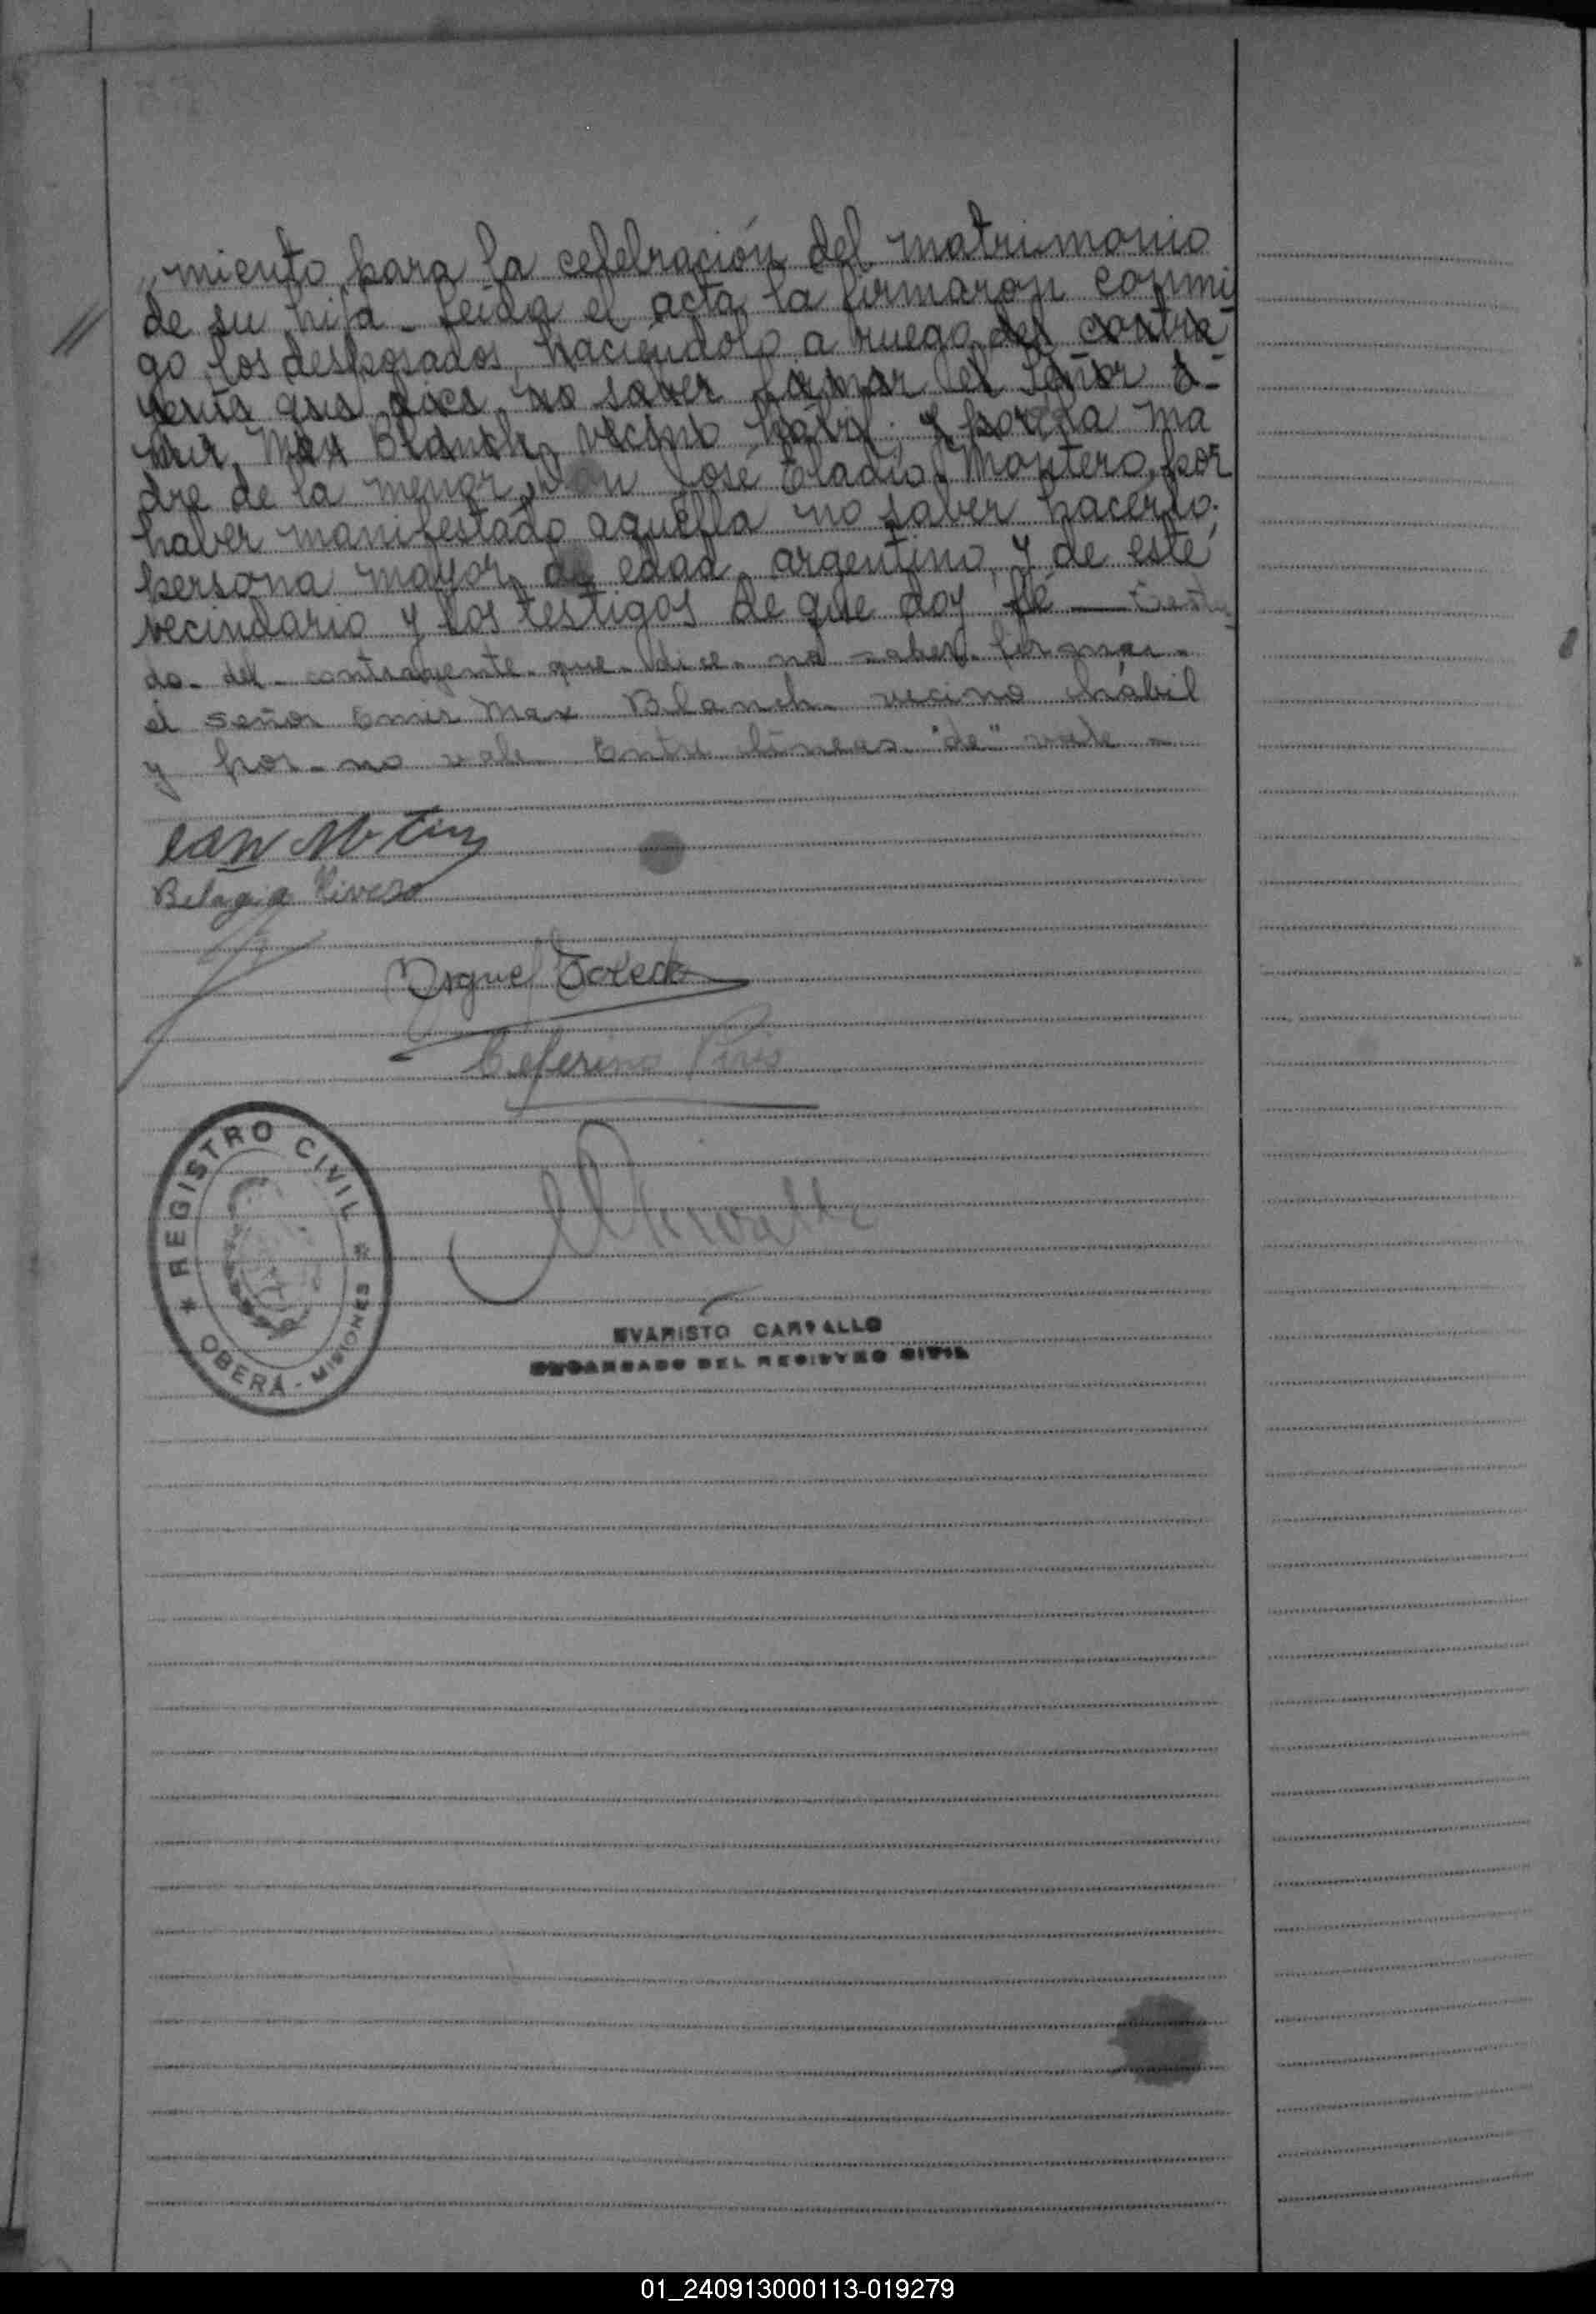 miento para la celebración del matrimonio
de su hija - Leída el acta la firmaron conmi
go los desposados, haciéndolo a ruego del contra
yente que dice no saber firmar el señor E-
mir Max Blanch, vecino hábil; y por la ma
dre de la menor, Don José Eladio Montero, por
haber manifestado aquella no saber hacerlo;
persona mayor de edad, argentino, y de este
vecindario y los testigos de que doy fé — Testa
do- del- contrayente- que- dice- no saber- firmar-
el señor Emir Max Blanch- vecino hábil
y por- no vale Entre líneas "de" vale -
Belagia Rivero
Miguel Toledo
Ceferino Piris
* REGISTRO CIVIL *
OBERÁ - MISIONES
EVARISTO CARVALLO
ENCARGADO DEL REGISTRO CIVIL
01_240913000113-019279